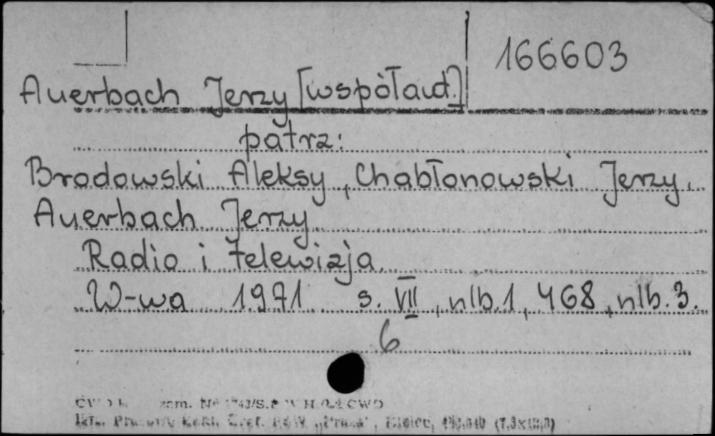 166603
Auerbach Jerzy [współaut.]
patrz:
Brodowski Aleksy, Chabłonowski Jerzy,
Auerbach Jerzy
Radio i telewizja
W-wa 1971 s. VII, nlb. 1, 468, nlb. 3.
6